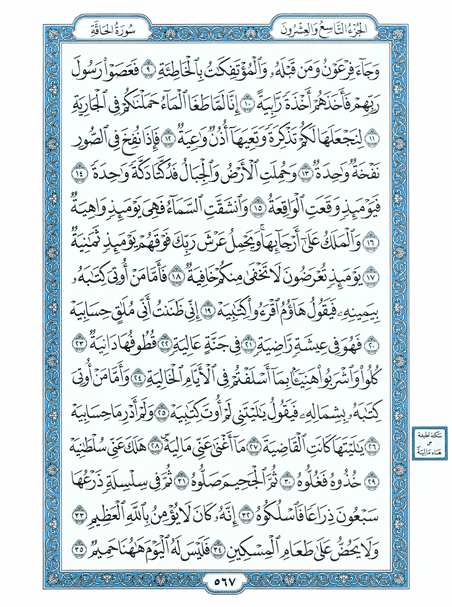 الجُزْءُ التَّاسِعُ وَالعِشْرُونَ
سُورَةُ الحَاقَّةِ
وَجَآءَ فِرْعَوْنُ وَمَن قَبْلَهُۥ وَٱلْمُؤْتَفِكَٰتُ بِٱلْخَاطِئَةِ ٩ فَعَصَوْا۟ رَسُولَ
رَبِّهِمْ فَأَخَذَهُمْ أَخْذَةً رَّابِيَةً ١٠ إِنَّا لَمَّا طَغَا ٱلْمَآءُ حَمَلْنَٰكُمْ فِى ٱلْجَارِيَةِ
١١ لِنَجْعَلَهَا لَكُمْ تَذْكِرَةً وَتَعِيَهَآ أُذُنٌ وَٰعِيَةٌ ١٢ فَإِذَا نُفِخَ فِى ٱلصُّورِ
نَفْخَةٌ وَٰحِدَةٌ ١٣ وَحُمِلَتِ ٱلْأَرْضُ وَٱلْجِبَالُ فَدُكَّتَا دَكَّةً وَٰحِدَةً ١٤
فَيَوْمَئِذٍ وَقَعَتِ ٱلْوَاقِعَةُ ١٥ وَٱنشَقَّتِ ٱلسَّمَآءُ فَهِىَ يَوْمَئِذٍ وَاهِيَةٌ
١٦ وَٱلْمَلَكُ عَلَىٰٓ أَرْجَآئِهَا ۚ وَيَحْمِلُ عَرْشَ رَبِّكَ فَوْقَهُمْ يَوْمَئِذٍ ثَمَٰنِيَةٌ
١٧ يَوْمَئِذٍ تُعْرَضُونَ لَا تَخْفَىٰ مِنكُمْ خَافِيَةٌ ١٨ فَأَمَّا مَنْ أُوتِىَ كِتَٰبَهُۥ
بِيَمِينِهِۦ فَيَقُولُ هَآؤُمُ ٱقْرَءُوا۟ كِتَٰبِيَهْ ١٩ إِنِّى ظَنَنتُ أَنِّى مُلَٰقٍ حِسَابِيَهْ
٢٠ فَهُوَ فِى عِيشَةٍ رَّاضِيَةٍ ٢١ فِى جَنَّةٍ عَالِيَةٍ ٢٢ قُطُوفُهَا دَانِيَةٌ ٢٣
كُلُوا۟ وَٱشْرَبُوا۟ هَنِيٓـًٔۢا بِمَآ أَسْلَفْتُمْ فِى ٱلْأَيَّامِ ٱلْخَالِيَةِ ٢٤ وَأَمَّا مَنْ أُوتِىَ
كِتَٰبَهُۥ بِشِمَالِهِۦ فَيَقُولُ يَٰلَيْتَنِى لَمْ أُوتَ كِتَٰبِيَهْ ٢٥ وَلَمْ أَدْرِ مَا حِسَابِيَهْ
٢٦ يَٰلَيْتَهَا كَانَتِ ٱلْقَاضِيَةَ ٢٧ مَآ أَغْنَىٰ عَنِّى مَالِيَهْ ٢٨ هَلَكَ عَنِّى سُلْطَٰنِيَهْ
٢٩ خُذُوهُ فَغُلُّوهُ ٣٠ ثُمَّ ٱلْجَحِيمَ صَلُّوهُ ٣١ ثُمَّ فِى سِلْسِلَةٍ ذَرْعُهَا
سَبْعُونَ ذِرَاعًا فَٱسْلُكُوهُ ٣٢ إِنَّهُۥ كَانَ لَا يُؤْمِنُ بِٱللَّهِ ٱلْعَظِيمِ ٣٣
وَلَا يَحُضُّ عَلَىٰ طَعَامِ ٱلْمِسْكِينِ ٣٤ فَلَيْسَ لَهُ ٱلْيَوْمَ هَٰهُنَا حَمِيمٌ ٣٥
سكتة لطيفة
على
هاء مَالِيَهْ
٥٦٧